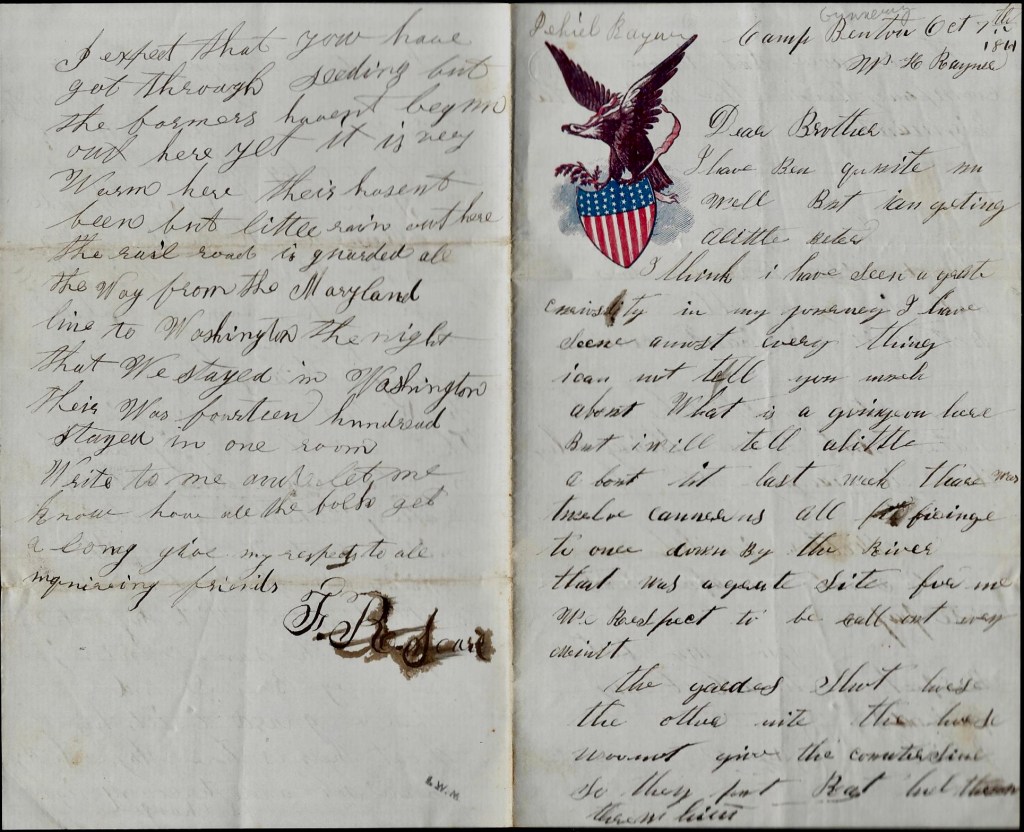 Camp Benton Oct 7th
1861
Wm H Rayner
Dear Brother
I have Ben quite un
well But ican geting
alittle beter
I think i have seen a grate
in my journey I have
seen amost every thing
ican not tell you much
about What is a going on here
But i will tell alittle
a bout it last week thare was
twelve cannerns all
to once down By the River
that was a grate Site for me
We Respect to be call out every
minitt
the gaedes Shot hors
the other nite the horse
woount give the countersine
So they put
them
I expect that you have
got through seeding but
the formers havent begun
out here yet it is very
Warm here their hasent
been but little rain out here
the rail road is guarded all
the Way from the Maryland
line to Washington the night
that We stayed in Washington
their Was fourteen hundread
stayed in one room
Write to me and let me
know how all the folks get
a long give my respects to all
inquireing friends
F. R.
L.W.M.